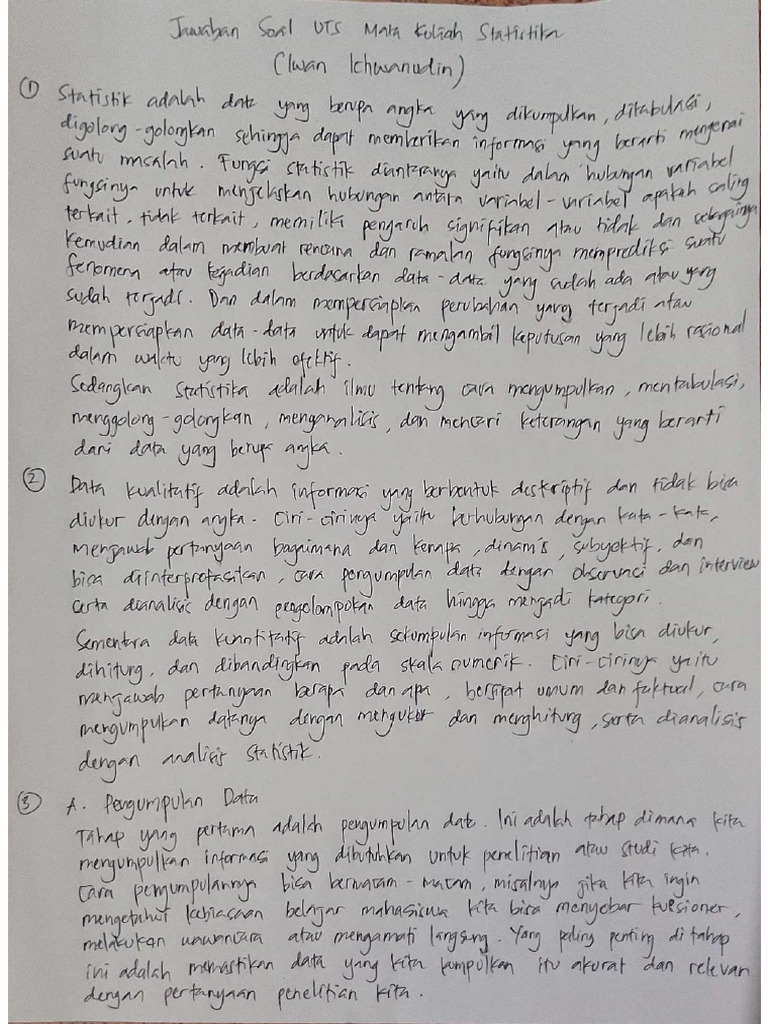 Jawaban Soal UTS Mata Kuliah Statistika
(Iwan Ichwanudin)
① Statistik adalah data yang berupa angka yang dikumpulkan, ditabulasi,
digolong-golongkan sehingga dapat memberikan informasi yang berarti mengenai
suatu masalah. Fungsi statistik diantaranya yaitu dalam hubungan variabel
fungsinya untuk menjelaskan hubungan antara variabel-variabel apakah saling
terkait, tidak terkait, memiliki pengaruh signifikan atau tidak dan sebagainya
kemudian dalam membuat rencana dan ramalan fungsinya memprediksi suatu
fenomena atau kejadian berdasarkan data-data yang sudah ada atau yang
sudah terjadi. Dan dalam mempersiapkan perubahan yang terjadi atau
mempersiapkan data-data untuk dapat mengambil keputusan yang lebih rasional
dalam waktu yang lebih efektif.
Sedangkan Statistika adalah ilmu tentang cara mengumpulkan, mentabulasi,
menggolong-golongkan, menganalisis, dan mencari keterangan yang berarti
dari data yang berupa angka.
② Data kualitatif adalah informasi yang berbentuk deskriptif dan tidak bisa
diukur dengan angka. Ciri-cirinya yaitu berhubungan dengan kata-kata,
menjawab pertanyaan bagaimana dan kenapa, dinamis, subyektif, dan
bisa diinterpretasikan, cara pengumpulan data dengan observasi dan interview
serta dianalisis dengan pengelompokan data hingga menjadi kategori.
Sementara data kuantitatif adalah sekumpulan informasi yang bisa diukur,
dihitung, dan dibandingkan pada skala numerik. Ciri-cirinya yaitu
menjawab pertanyaan berapa dan apa, bersipat umum dan faktual, cara
mengumpukan datanya dengan mengukur dan menghitung, serta dianalisis
dengan analisis statistik.
③ A. Pengumpulan Data
Tahap yang pertama adalah pengumpulan data. Ini adalah tahap dimana kita
mengumpulkan informasi yang dibutuhkan untuk penelitian atau studi kita.
Cara pengumpulannya bisa bermacam-macam, misalnya jika kita ingin
mengetahui kebiasaan belajar mahasiswa kita bisa menyebar kuesioner,
melakukan wawancara atau mengamati langsung. Yang paling penting di tahap
ini adalah memastikan data yang kita kumpulkan itu akurat dan relevan
dengan pertanyaan penelitian kita.